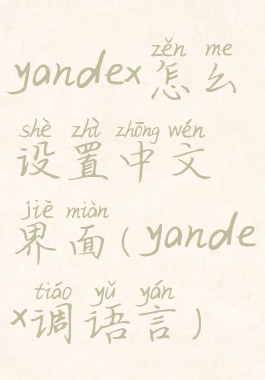 zěn me
yandex怎么
shè zhì zhōng wén
设置中文
jiè miàn
界面(yande
tiáo yǔ yán
x调语言)